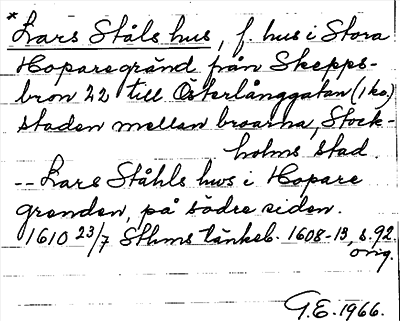 * Lars Ståls hus, f. hus i Stora
Hoparegränd från Skepps-
bron 22 till Österlånggatan (1 ko.)
staden mellan broarna, Stock-
holms stad.
-- Lars Ståhls hws i Hopare
grenden, på södre siden.
1610 23/7 Sthms tänkeb. 1608-13, s. 92.
orig.
G.E. 1966.